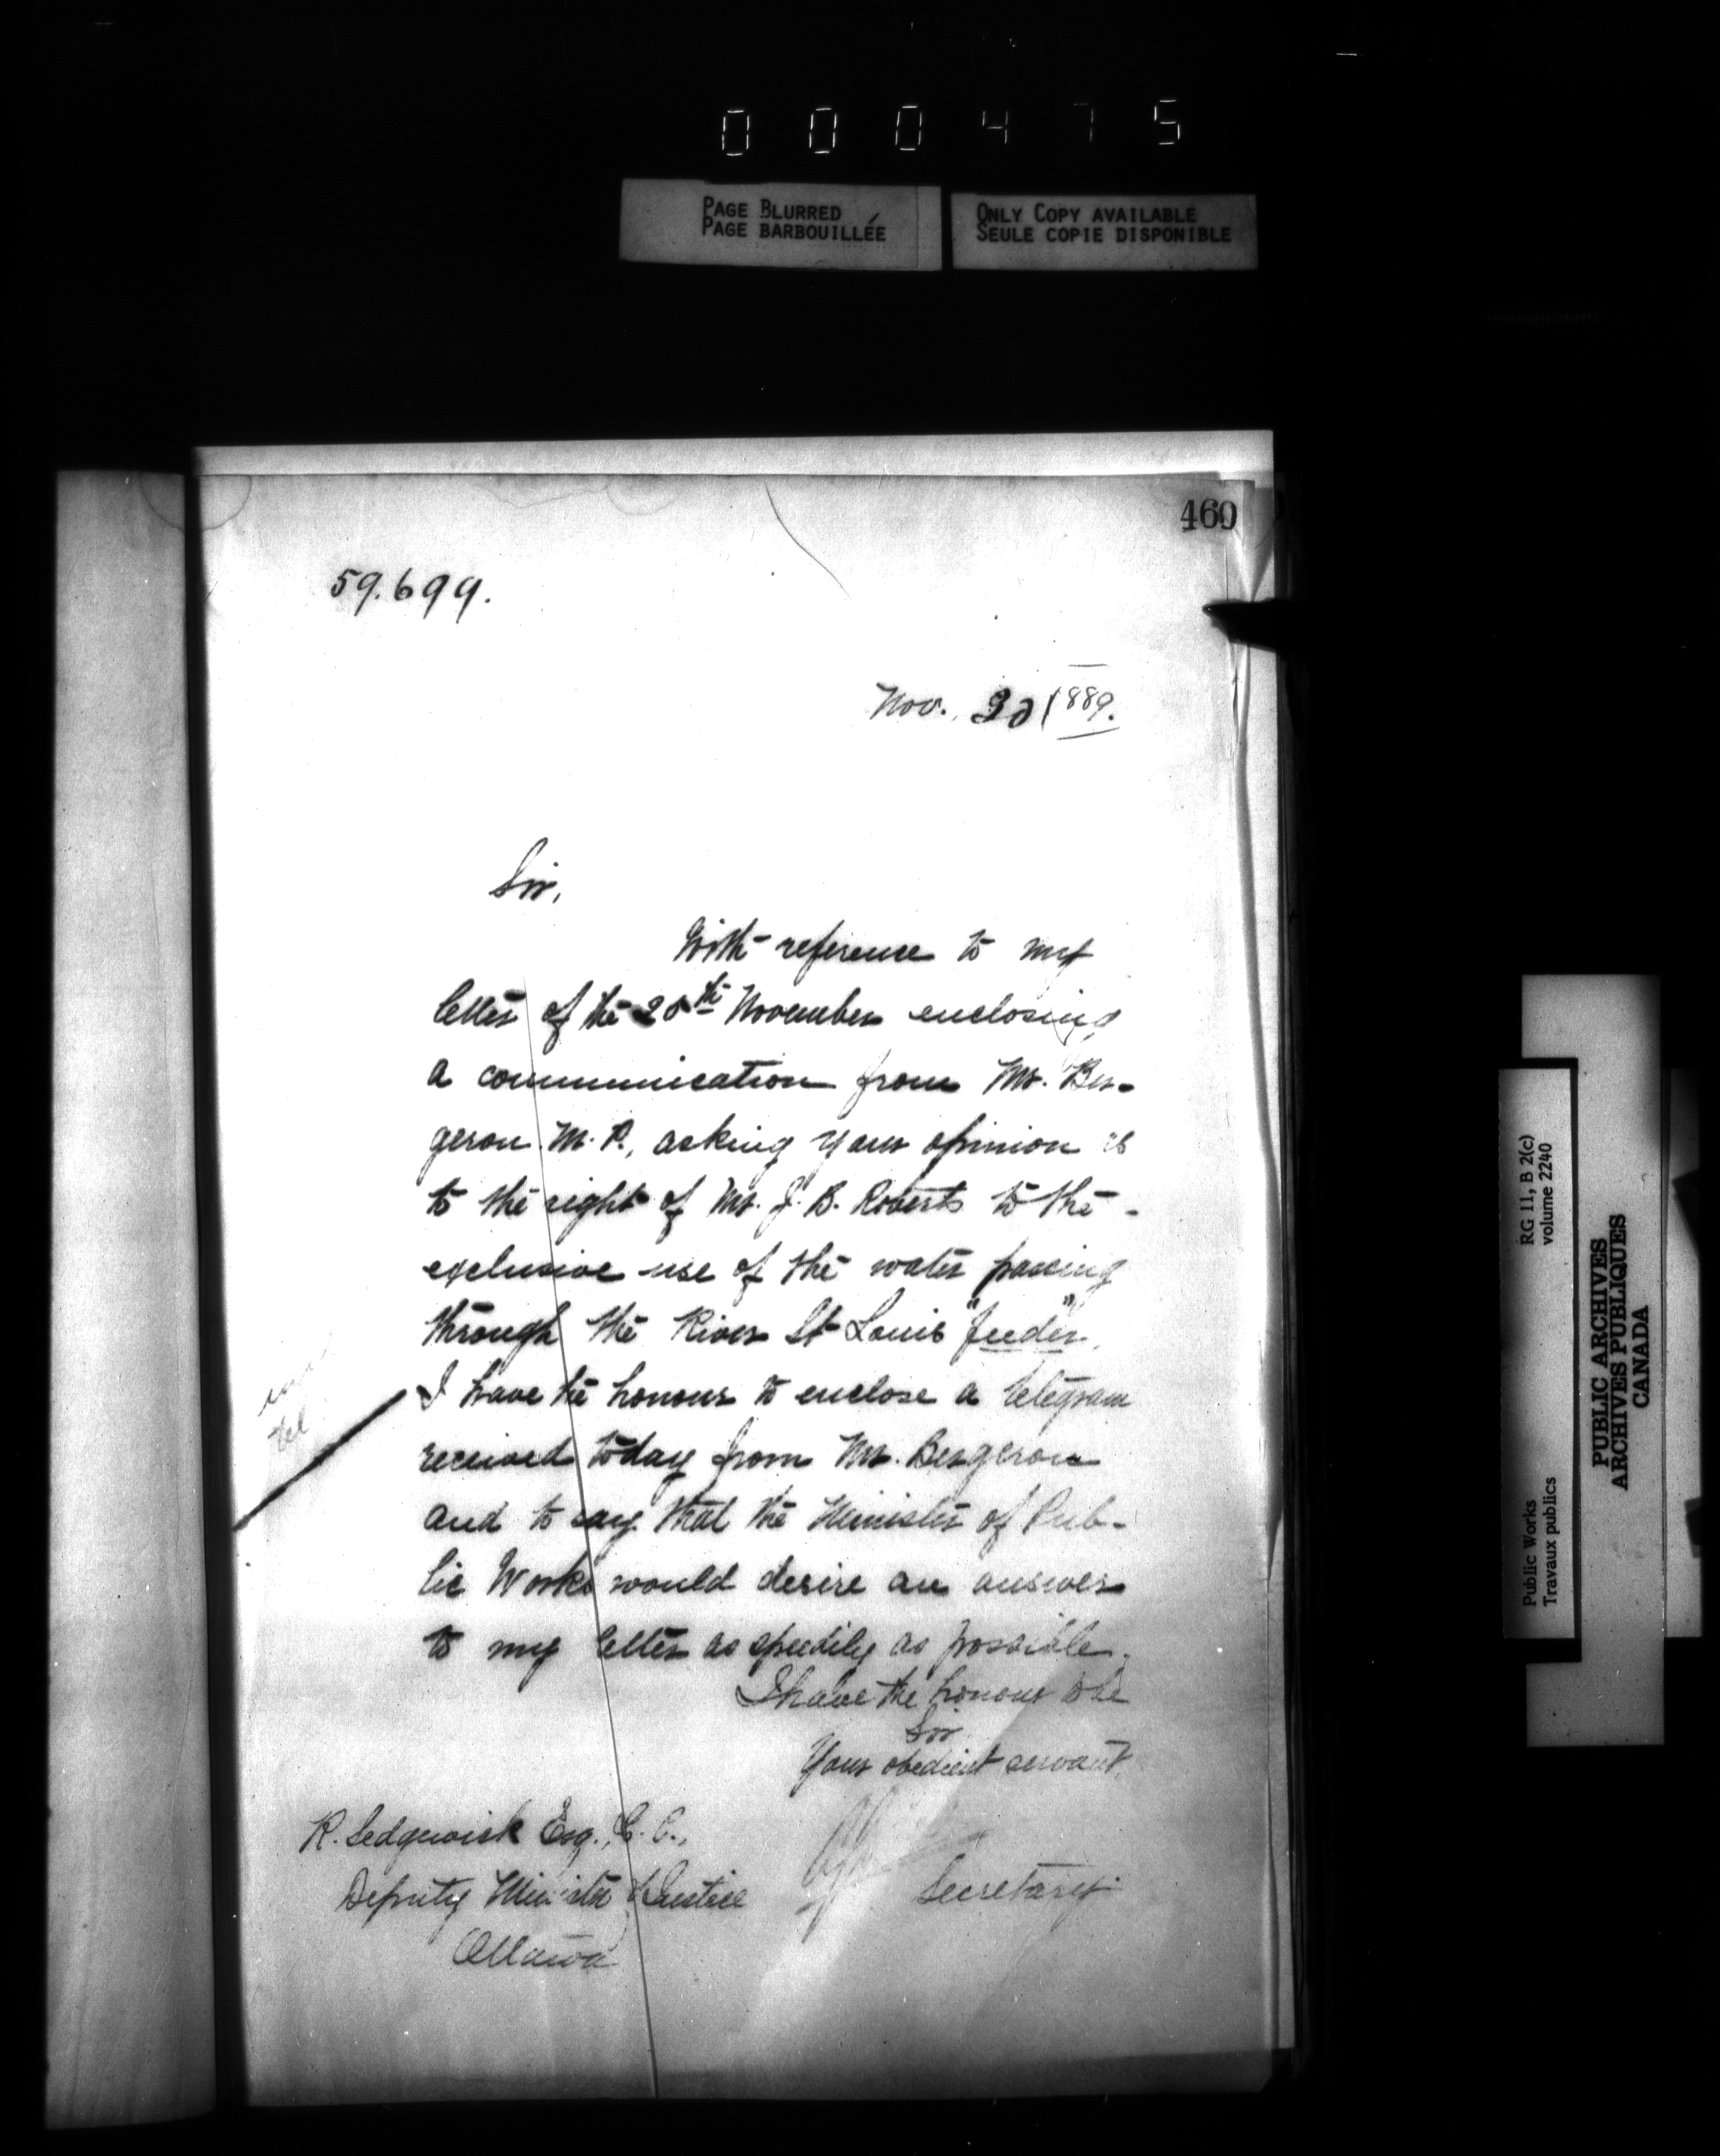 000475
PAGE BLURRED
PAGE BARBOUILLÉE
ONLY COPY AVAILABLE
SEULE COPIE DISPONIBLE
460
59.699.
Nov. 1889.
Sir,
With reference to my
letter of the 20th November enclosing
a communication from Mr. Ber-
geron M.P., asking your opinion as
to the right of Mr. J. B. Roberts to the
exclusive use of the water passing
through the River St Louis "feeder",
I have the honour to enclose a telegram
received today from Mr. Bergeron
and to say that the Minister of Pub-
lic Works would desire an answer
to my letter as speedily as possible.
I have the honour to be
Sir
Your obedient servant,
Secretary
R. Sedgewick Esq., C.,
Deputy Minister of Justice
Ottawa
RG 11, B 2(c)
volume 2240
Public Works
Travaux publics
PUBLIC ARCHIVES
ARCHIVES PUBLIQUES
CANADA